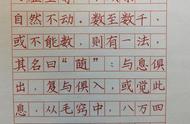 自然不动，数至数千，
或不能数，则有一法，
其名曰“随”：与息俱
出，复与俱入，或觉此
息，从毛窍中，八万四